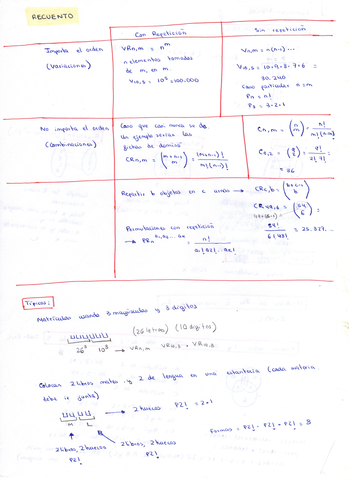 RECUENTO
Con Repetición
Sin repetición
Importa el orden
(Variaciones)
VRn,m = n^m
n elementos tomados
de m, en m
V10,5 = 10^5 = 100.000
Vn,m = n(n-1) ...
V10,5 = 10·9·8·7·6 =
30.240
Caso particular n=m
Pn = n!
P3 = 3·2·1
No importa el orden
(Combinaciones)
Caso que casi nunca se da
un ejemplo serían las
fichas de dominó
CRn,m = (m+n-1 / m) = (m+n-1)! / m!(n-1)!
Cn,m = (n / m) = n! / m!(n-m)!
C9,2 = (9 / 2) = 9! / 2! 7! =
= 36
Repartir b objetos en c
Permutaciones con repetición
n!
Típicos:
Matriculas usando 3 mayúsculas y 3 dígitos
(26 letras) (10 dígitos)
26^3 10^3 → VRn,m
Colocar 2 libros mates y 2 de lengua en una estantería (cada materia
debe ir junta)
→ 2 huecos P2! = 2·1
M L
2 libros, 2 huecos
P2!
2 libros, 2 huecos
P2!
Formas = P2! · P2! · P2! = 8